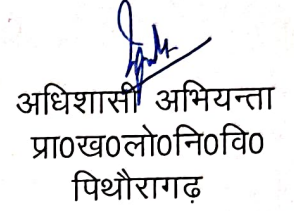 अधिशासी अभियन्ता
प्रा०ख०लो०नि०वि०
पिथौरागढ़